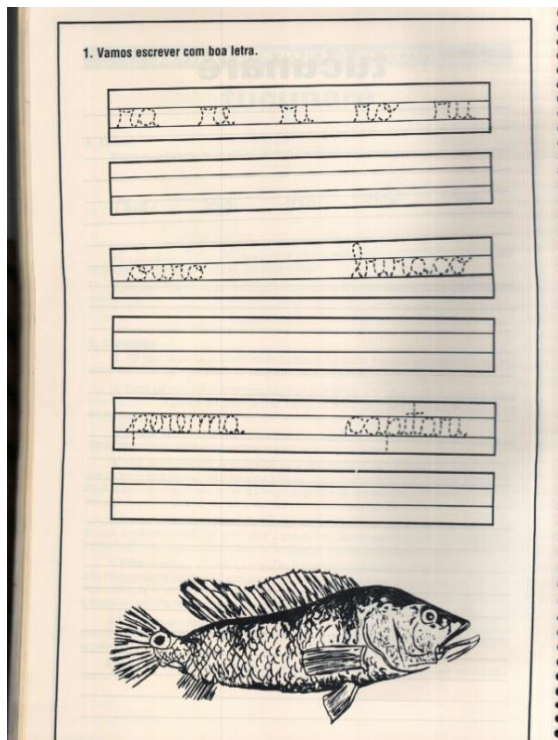 1. Vamos escrever com boa letra.
ra re ri ro ru
ouro buraco
perema capitari